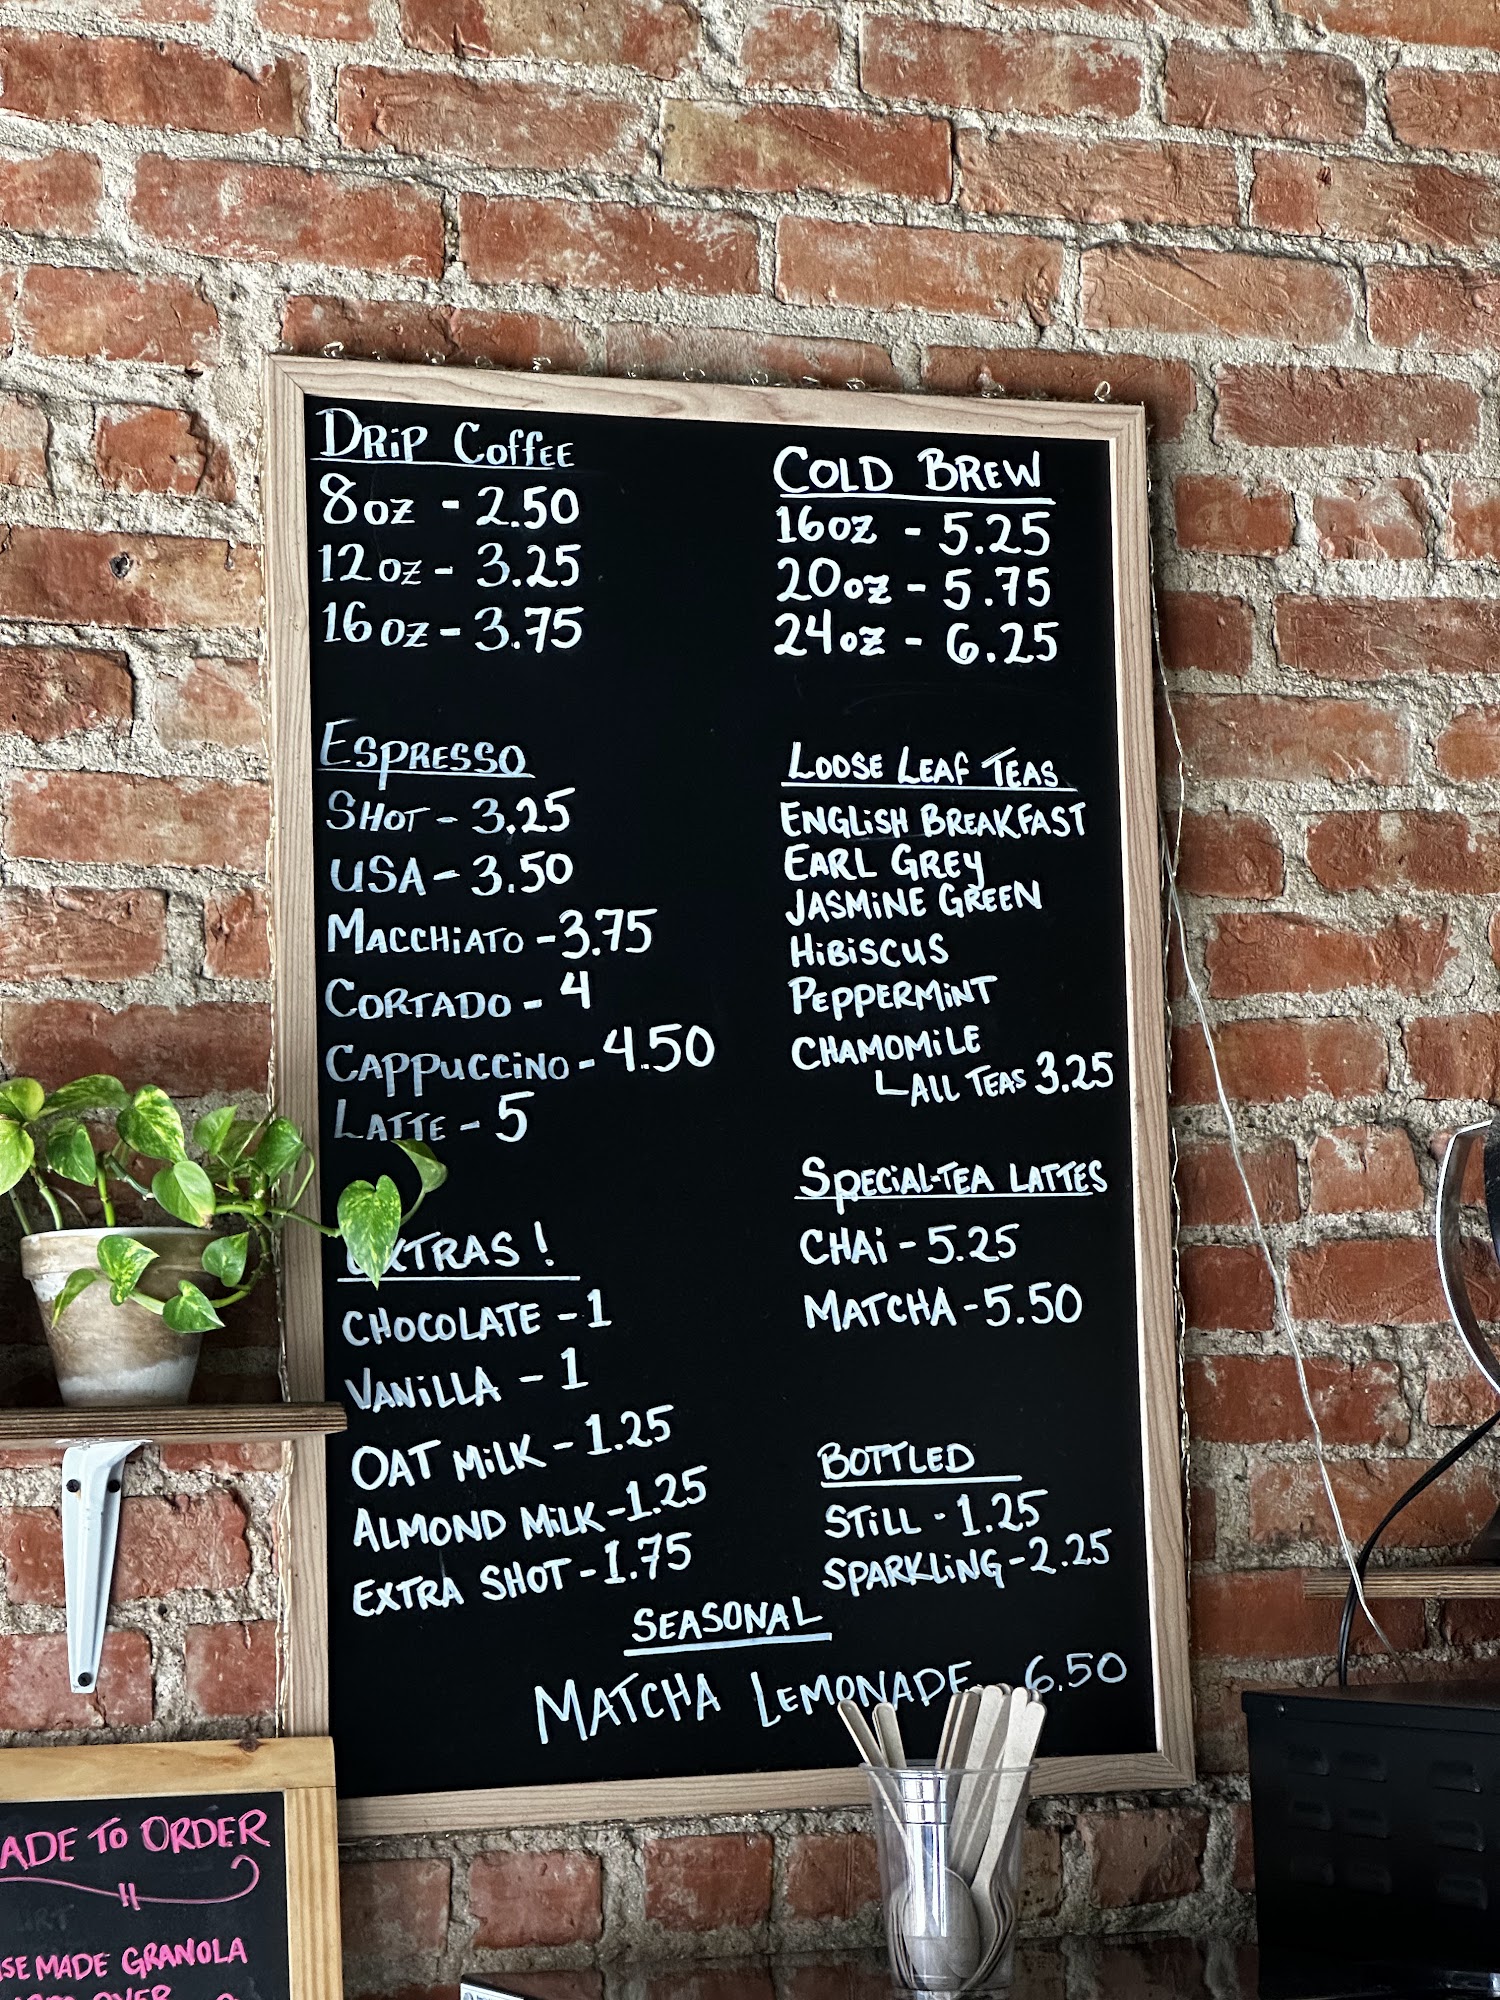 DRiP COFFEE
8oz - 2.50
12oz - 3.25
16oz - 3.75
ESPRESSO
SHOT - 3.25
USA - 3.50
MACCHiATO - 3.75
CORTADO - 4
CAPPUCCiNO - 4.50
LATTE - 5
EXTRAS!
CHOCOLATE - 1
VANiLLA - 1
OAT MiLK - 1.25
ALMOND MiLK - 1.25
EXTRA SHOT - 1.75
COLD BREW
16oz - 5.25
20oz - 5.75
24oz - 6.25
LOOSE LEAF TEAS
ENGLiSH BREAKFAST
EARL GREY
JASMiNE GREEN
HiBiSCUS
PEPPERMiNT
CHAMOMiLE
ALL TEAS 3.25
SPECiAL-TEA LATTES
CHAi - 5.25
MATCHA - 5.50
BOTTLED
STiLL - 1.25
SPARKLiNG - 2.25
SEASONAL
MATCHA LEMONADE 6.50
ADE TO ORDER
SE MADE GRANOLA
OVER